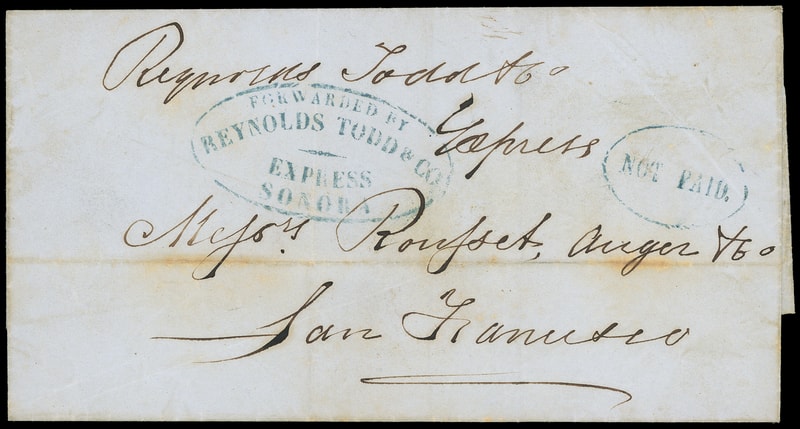 Reynolds Todd & Co
Express
FORWARDED BY
REYNOLDS TODD & CO
EXPRESS
SONORA
NOT PAID.
Messrs. Rousset, Auger & Co
San Francisco